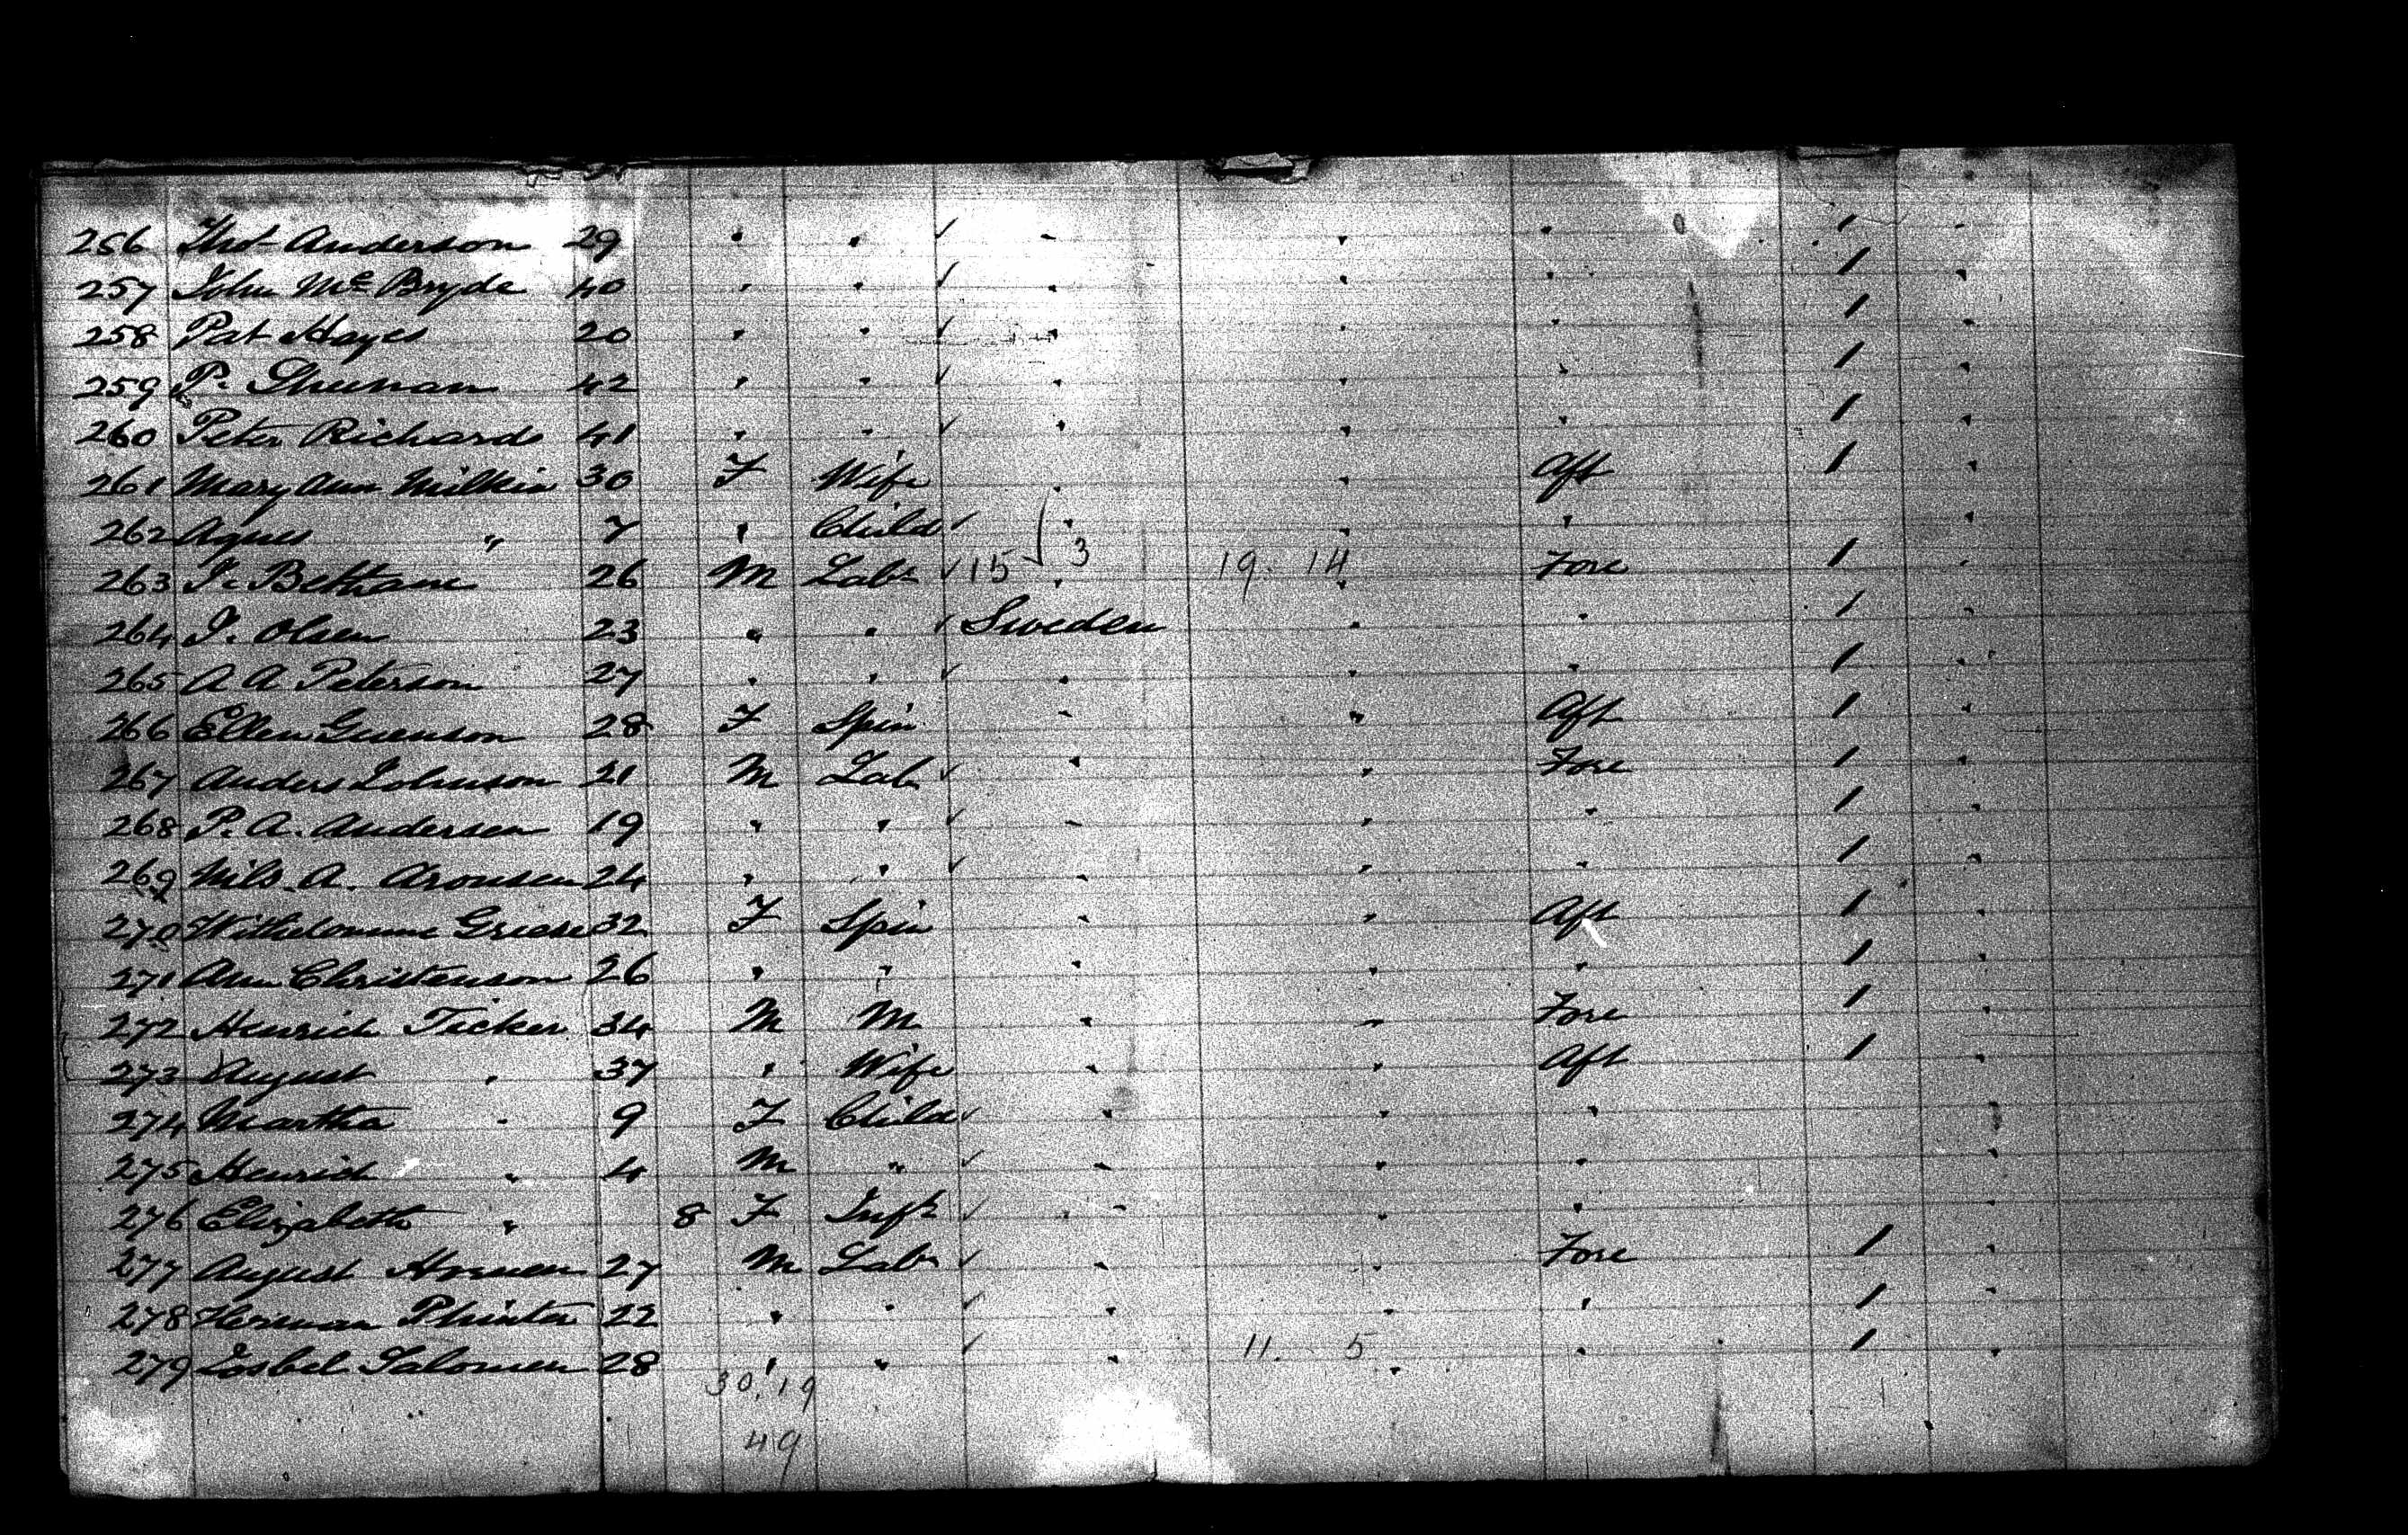 256 Thos Anderson 29 " " ✓ " " " / "
257 John McBryde 40 " " ✓ " " " / "
258 Pat Hayes 20 " " ✓ " " " / "
259 P. 42 " " ✓ " " " / "
260 Peter Richards 41 " " ✓ " " " / "
261 Mary Ann Milkin 30 F Wife " " Aft / "
262 Agnes " 7 " Child ✓ " " " "
263 26 M Labr ✓ 15 3 " 19. 14 " Fore / "
264 J. Olsen 23 " " ✓ Sweden " " / "
265 A A Peterson 27 " " ✓ " " " / "
266 Ellen 28 F Spin " " Aft / "
267 Anders Johnson 21 M Lab ✓ " " Fore / "
268 P. A. Andersen 19 " " ✓ " " " / "
269 Nils. A. Aronsen 24 " " ✓ " " " / "
270 32 F Spin " " Aft / "
271 Ann Christenson 26 " " " " " / "
272 Henrich Ticker 34 M M " " Fore / "
273 August " 37 " Wife " " Aft / "
274 Martha " 9 F Child ✓ " " " "
275 Henrich " 4 M " ✓ " " " "
276 Elizabeth " 8 F Inft ✓ " " " "
277 August 27 M Labr ✓ " " Fore / "
278 Herman 22 " " ✓ " " " / "
279 Salomen 28 " " ✓ " 11. 5 " " / "
30. 19
49